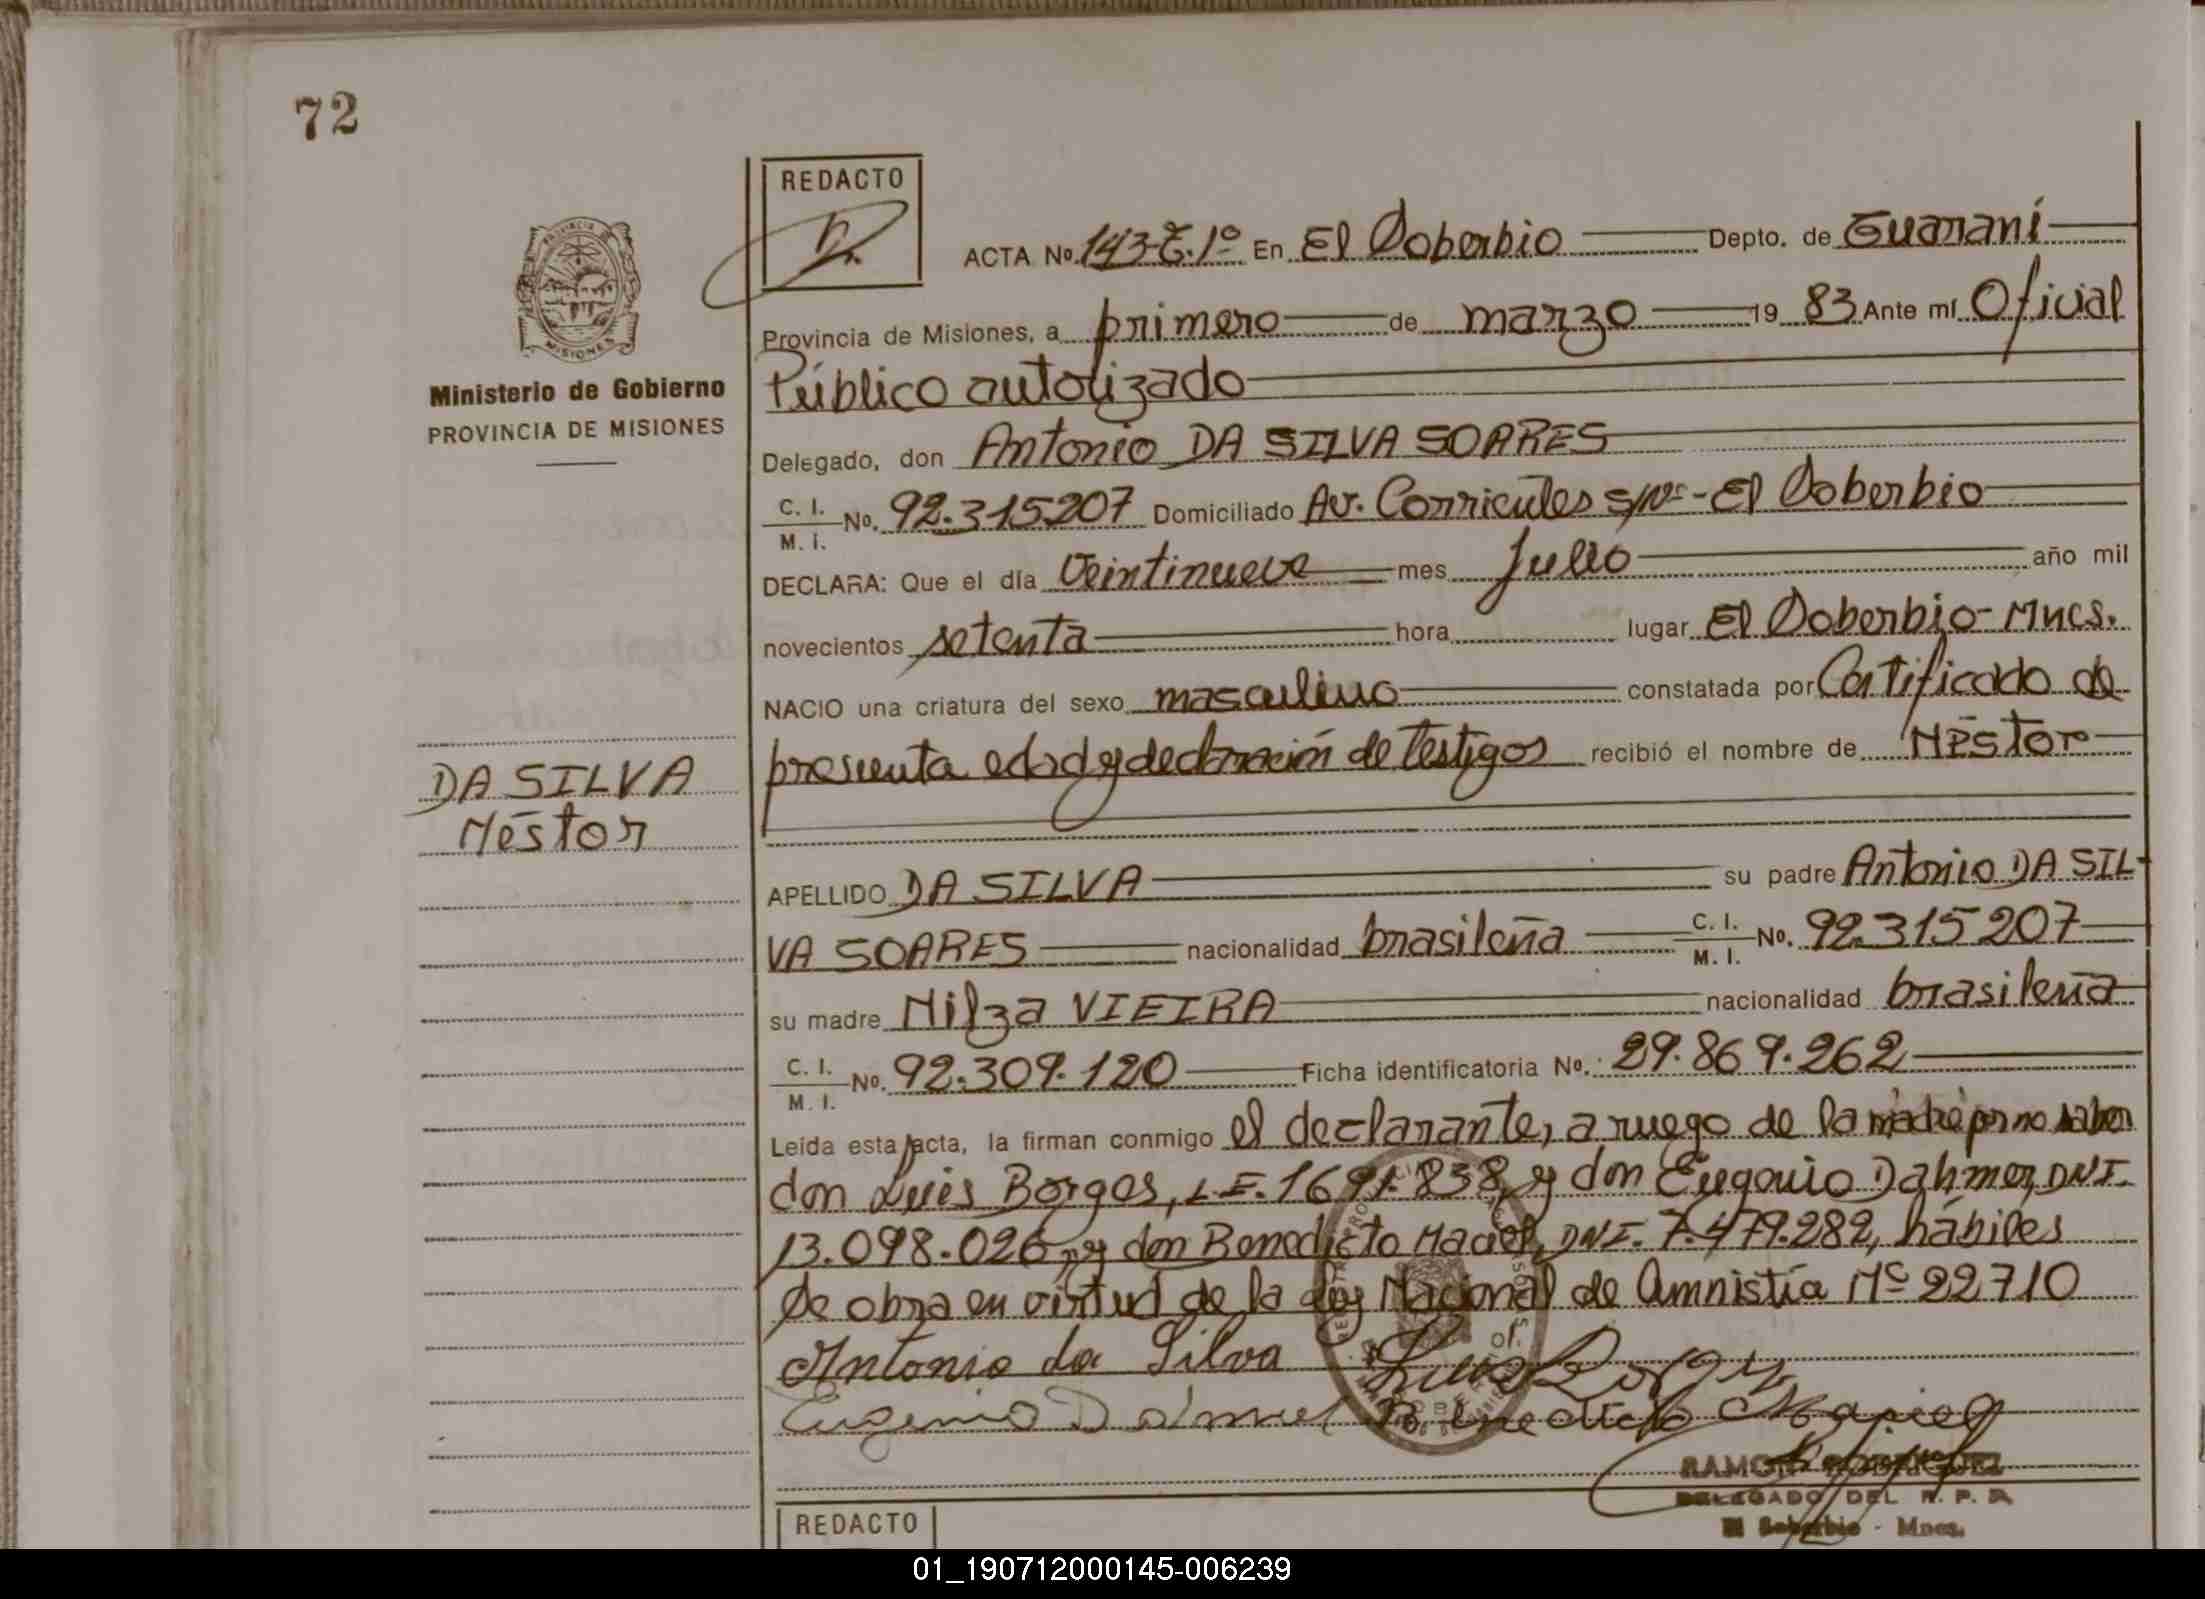 72
REDACTO
ACTA No. 143-T.1º En El Soberbio Depto. de Guaraní
Provincia de Misiones, a primero de marzo 19 83 Ante mí Oficial
Público autorizado
Ministerio de Gobierno
PROVINCIA DE MISIONES
Delegado, don Antonio DA SILVA SOARES
C. I.
M. I. No. 92.315207 Domiciliado Av. Corrientes s/Nº - El Soberbio
DECLARA: Que el día Veintinueve mes Julio año mil
novecientos setenta hora lugar El Soberbio - Mnes.
NACIO una criatura del sexo masculino constatada por Certificado de
presunta edad y declaración de testigos recibió el nombre de Néstor
DA SILVA
Néstor
APELLIDO DA SILVA su padre Antonio DA SIL-
VA SOARES nacionalidad brasileña C. I.
M. I. No. 92.315207
su madre Nilza VIEIRA nacionalidad brasileña
C. I.
M. I. No. 92.309.120 Ficha identificatoria No. 29.869.262
Leída esta acta, la firman conmigo el declarante, a ruego de la madre por no saber
don Luis Borges, L.E. 1691.838, y don Eugenio Dahmer, DNI.
13.098.026, y don Benedicto Maciel, DNI. 7.479.282, hábiles
Se obra en virtud de la Ley Nacional de Amnistía Nº 22710
Antonio da Silva Luis Borges
Eugenio Benedicto Maciel
RAMON RODRIGUEZ
DELEGADO DEL R. P. P.
El Soberbio - Mnes.
REDACTO
01_190712000145-006239